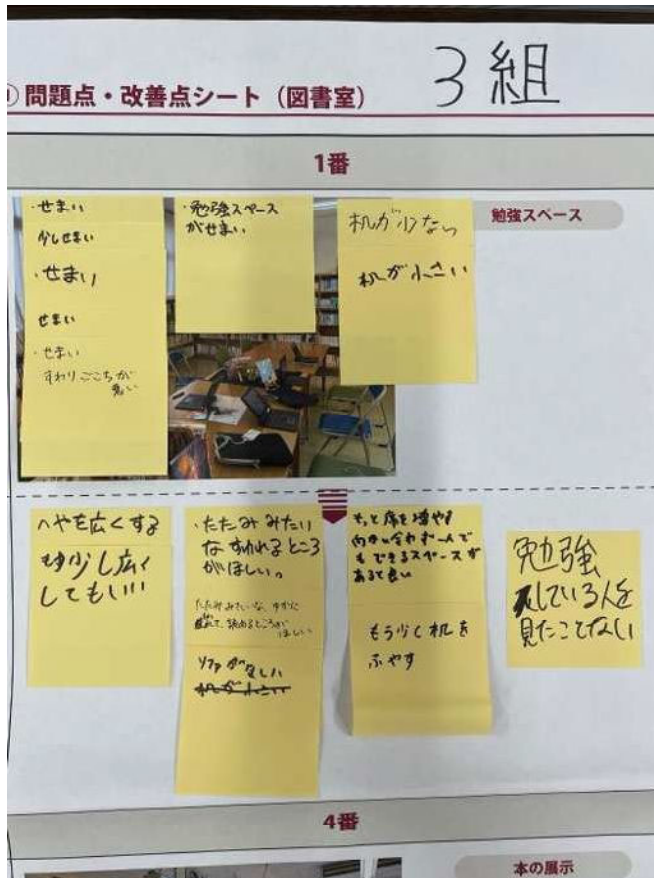 問題点・改善点シート（図書室）
3組
1番
勉強スペース
・せまい
少しせまい
・せまい
せまい
・せまい
すわりごこちが
悪い
・勉強スペース
がせまい
机が少ない
机が小さい
へやを広くする
もう少し広く
してもいい
・たたみみたい
なすわれるところ
がほしい。
たたみみたいな、ゆかに
座れて、読めるところが
ほしい
ソファがほしい
机が小さい
もっと席を増やす
向かい合わず一人で
もできるスペースが
あると良い
もう少し机を
ふやす
勉強
している人を
見たことない
4番
本の展示